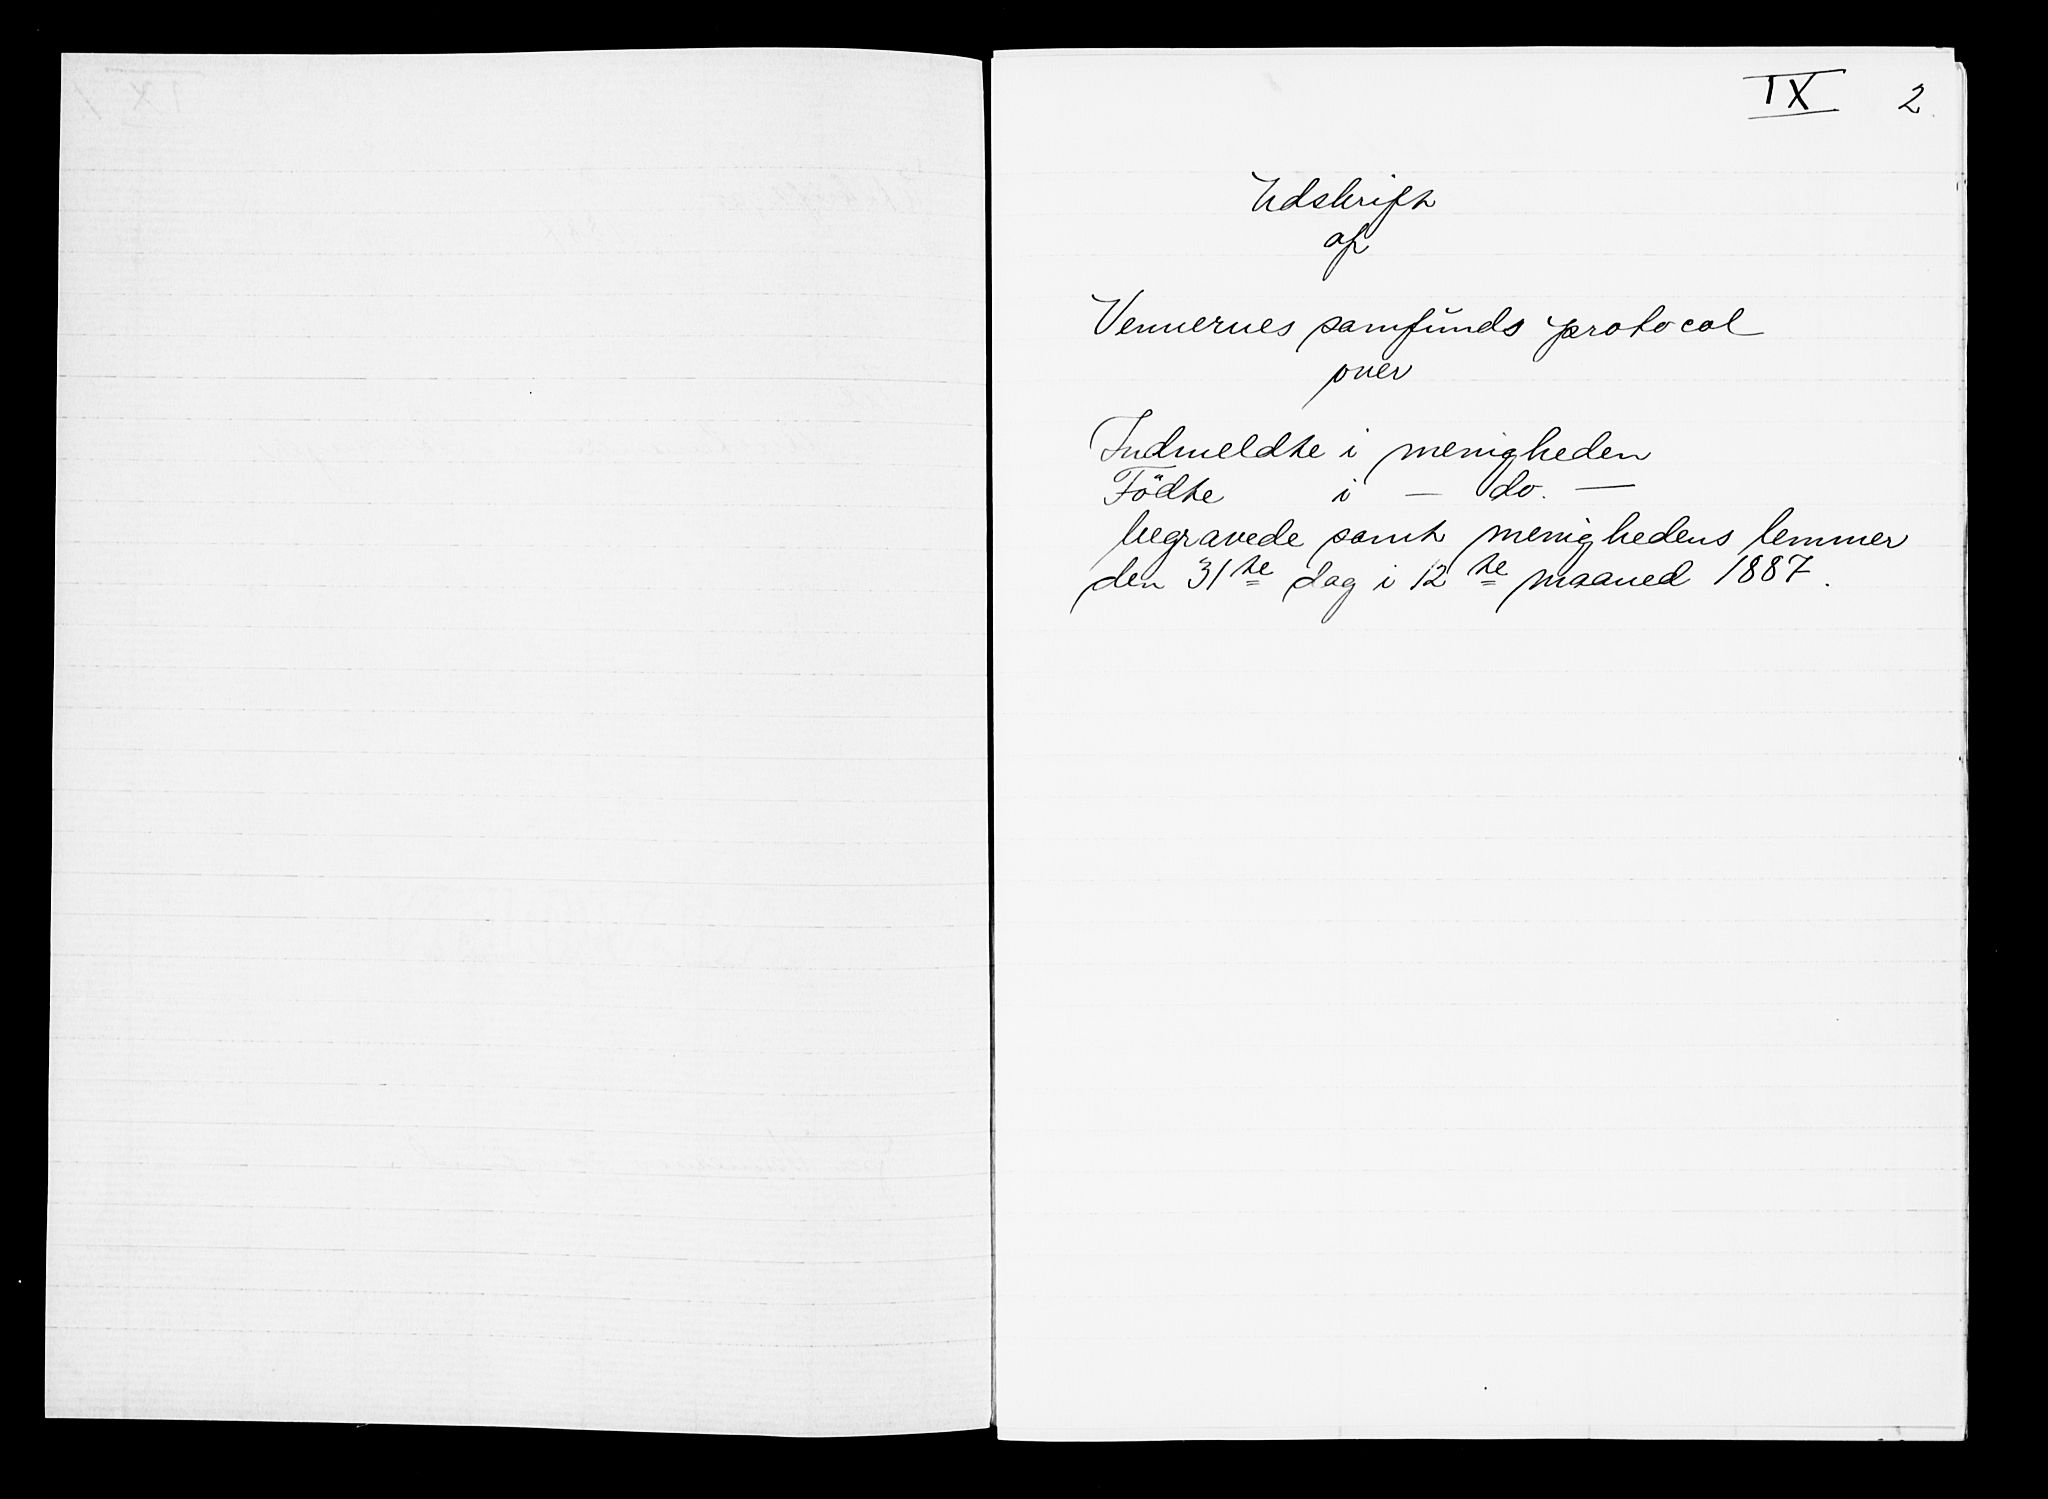 IX 2
Udskrift
af
Vennernes samfunds protocol
over
Indmeldte i menigheden
Födte i — do. —
begravede samt menighedens lemmer
den 31te dag i 12te maaned 1887.